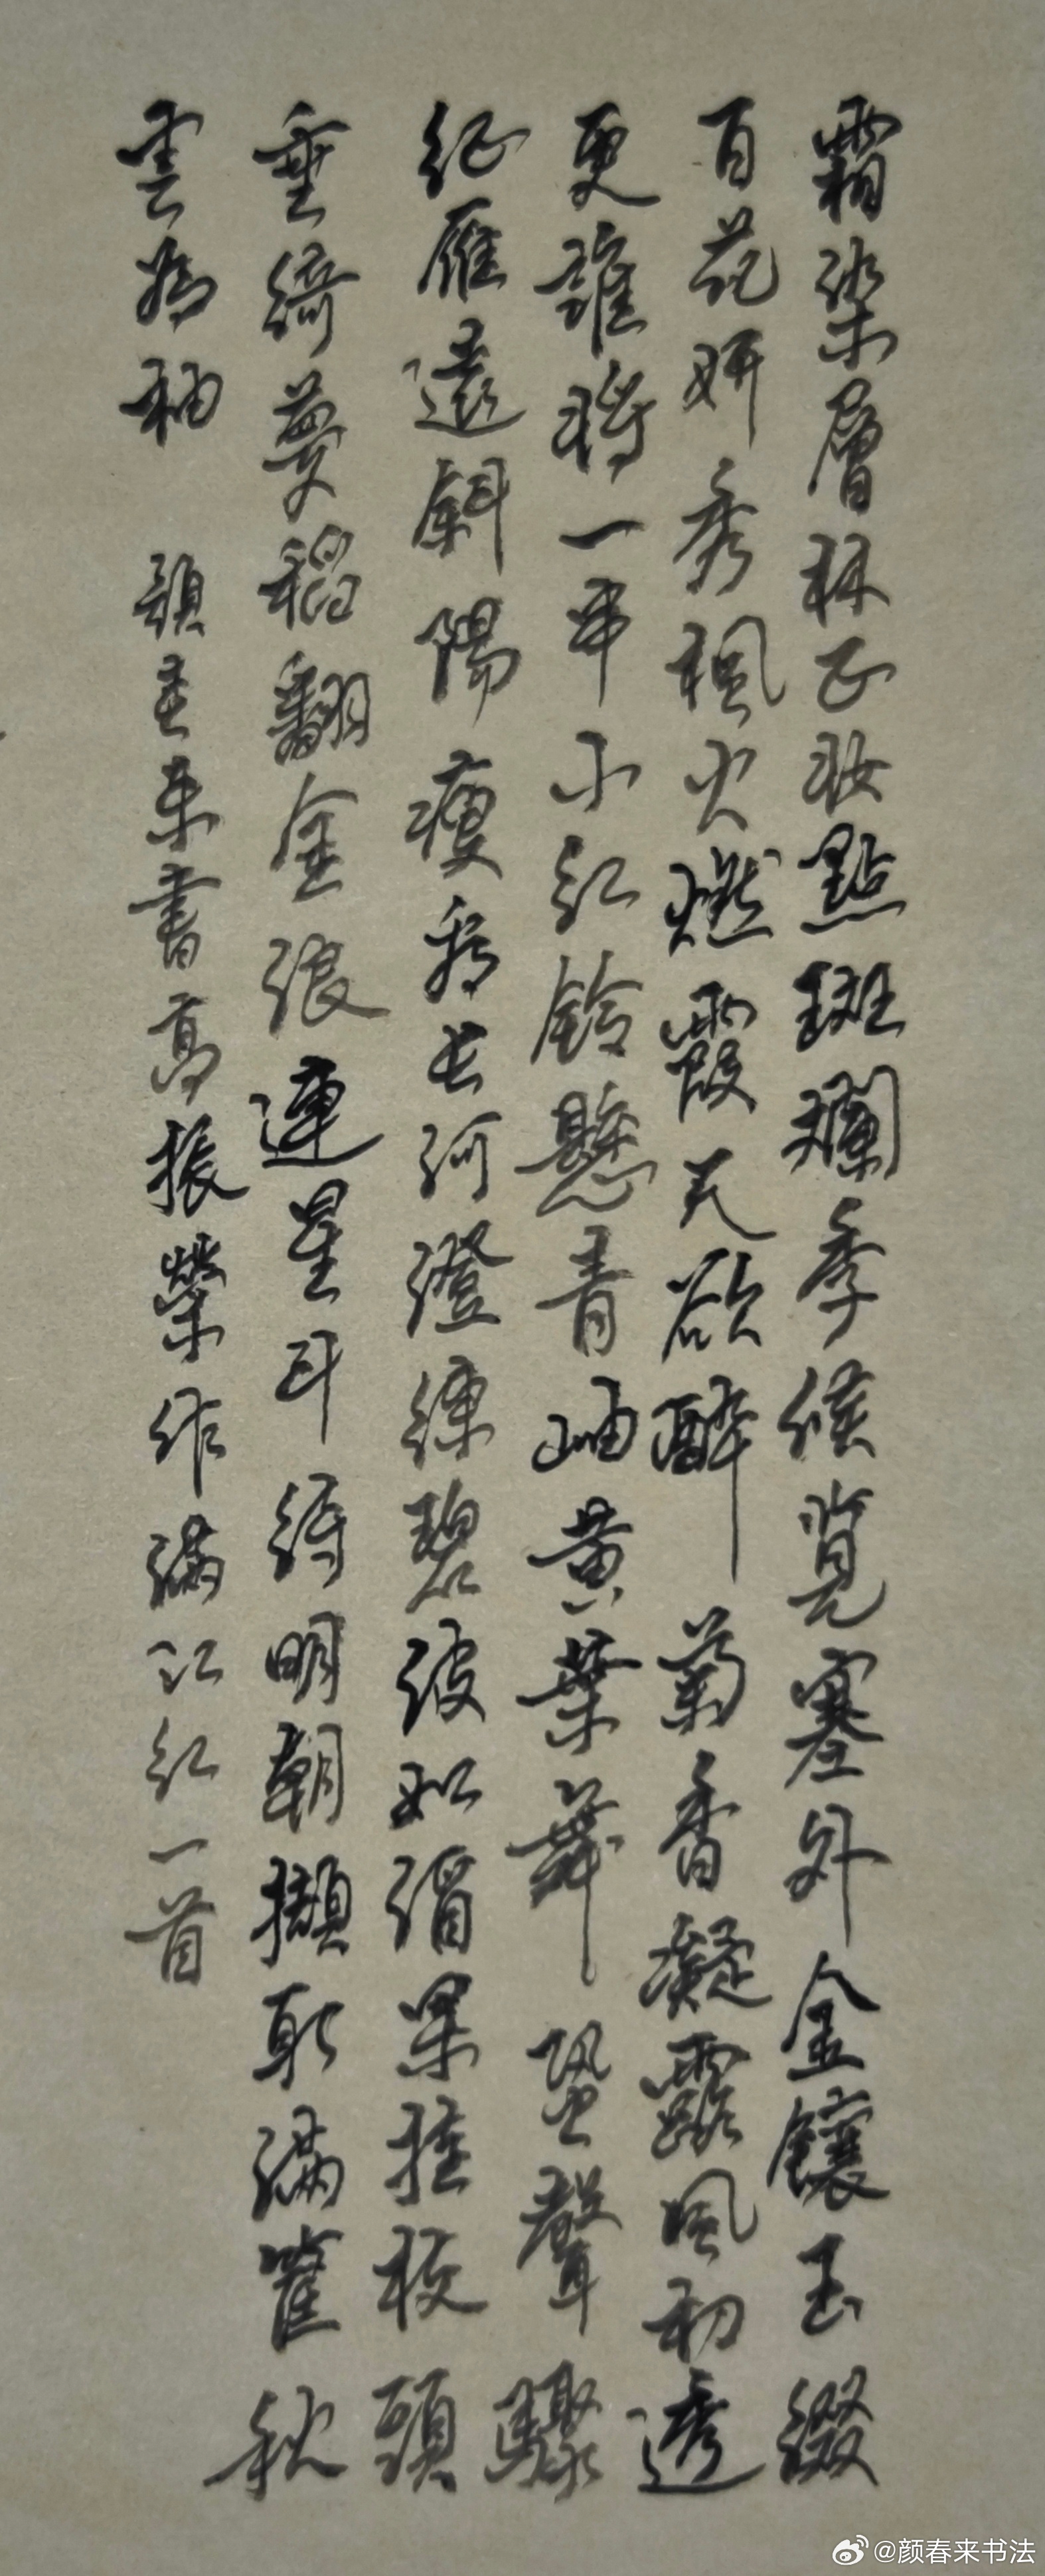 霜染層林正妝點斑斕季候覓塞外金鑲玉綴
百花妍秀楓火燃霞天欲醉菊香凝露風初透
更誰將一串小紅鈴懸青岫黃葉舞蛩聲驟
征雁遠斜陽瘦看長河澄練碧波如溜果掛枝頭
垂綺夢稻翻金浪連星斗待明朝擷取滿簍秋
雲為袖 顏春來書高振榮作滿江紅一首
@颜春来书法